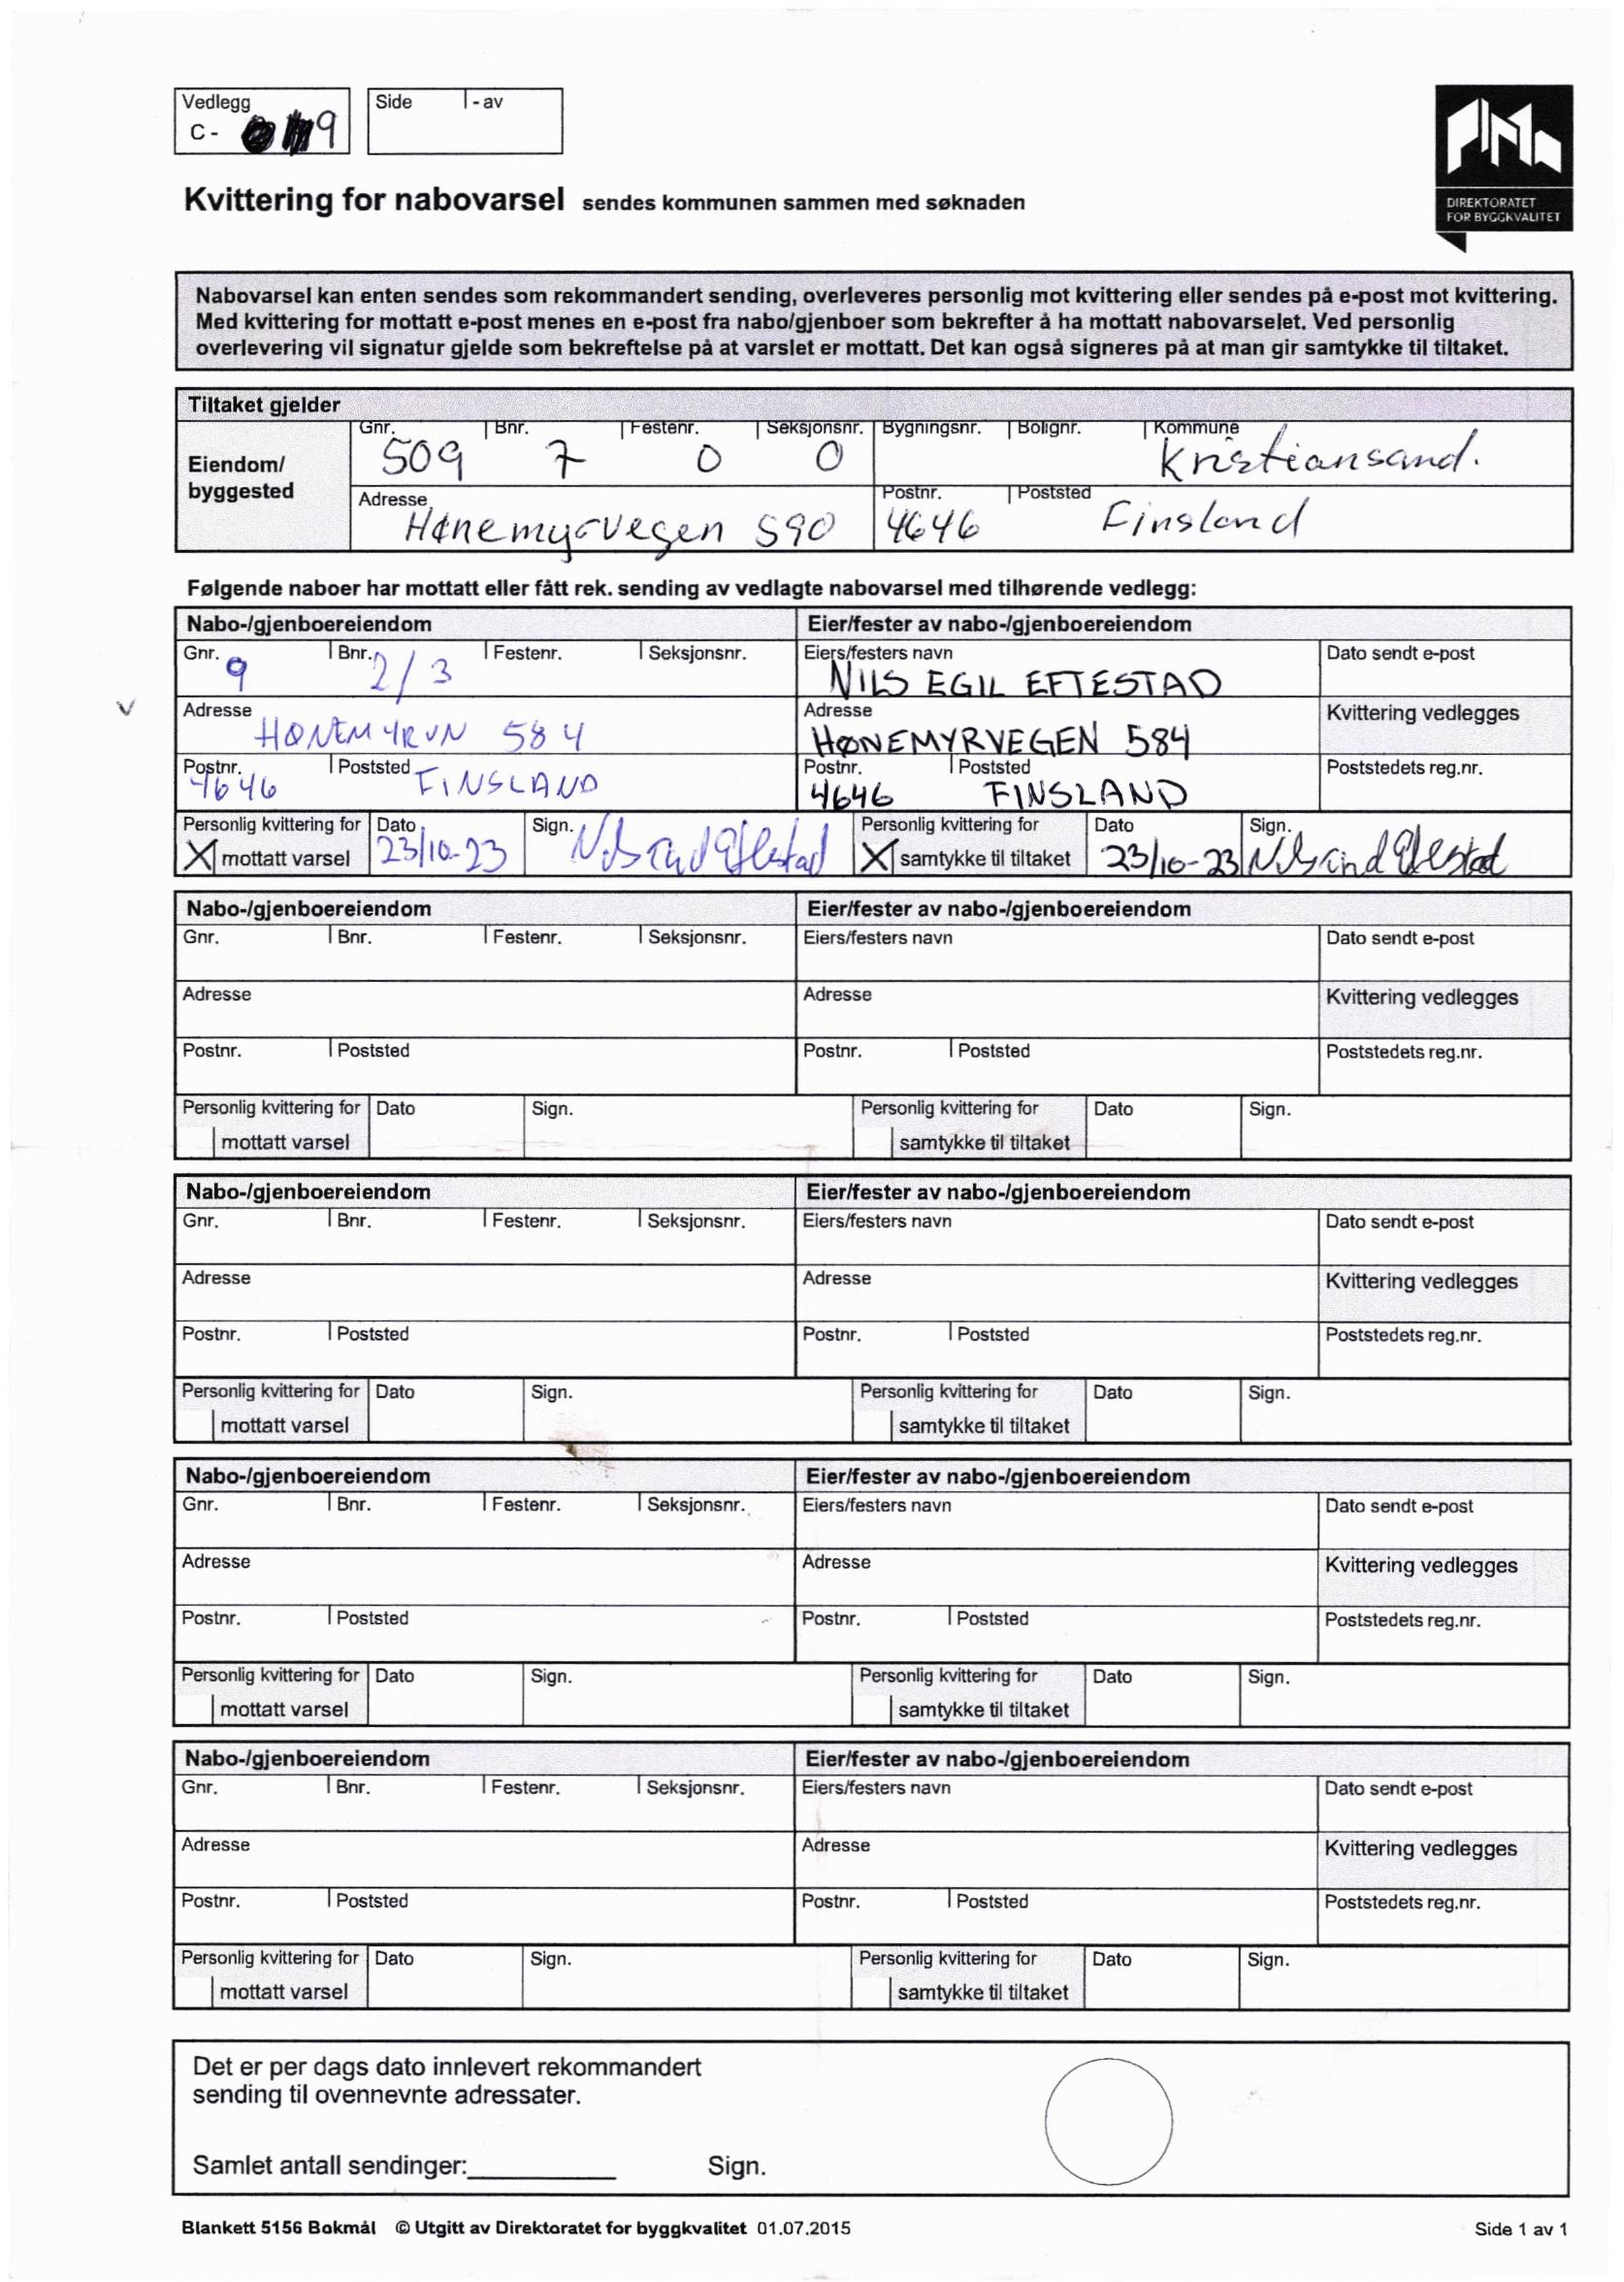 Vedlegg
C - 9
Side - av
DIREKTORATET
FOR BYGGKVALITET
Kvittering for nabovarsel sendes kommunen sammen med søknaden
Nabovarsel kan enten sendes som rekommandert sending, overleveres personlig mot kvittering eller sendes på e-post mot kvittering.
Med kvittering for mottatt e-post menes en e-post fra nabo/gjenboer som bekrefter å ha mottatt nabovarselet. Ved personlig
overlevering vil signatur gjelde som bekreftelse på at varslet er mottatt. Det kan også signeres på at man gir samtykke til tiltaket.
Tiltaket gjelder
Eiendom/
byggested
Gnr. Bnr. Festenr. Seksjonsnr. Bygningsnr. Bolignr. Kommune
509 7 0 0 Kristiansand.
Adresse Postnr. Poststed
Hønemyrvegen 590 4646 Finsland
Følgende naboer har mottatt eller fått rek. sending av vedlagte nabovarsel med tilhørende vedlegg:
Nabo-/gjenboereiendom Eier/fester av nabo-/gjenboereiendom
Gnr. Bnr. Festenr. Seksjonsnr. Eiers/festers navn Dato sendt e-post
9 2/3 NILS EGIL EFTESTAD
Adresse Adresse Kvittering vedlegges
HØNEMYRVN 584 HØNEMYRVEGEN 584
Postnr. Poststed Postnr. Poststed Poststedets reg.nr.
4646 FINSLAND 4646 FINSLAND
Personlig kvittering for Dato Sign. Personlig kvittering for Dato Sign.
X mottatt varsel 23/10-23 X samtykke til tiltaket 23/10-23
Nabo-/gjenboereiendom Eier/fester av nabo-/gjenboereiendom
Gnr. Bnr. Festenr. Seksjonsnr. Eiers/festers navn Dato sendt e-post
Adresse Adresse Kvittering vedlegges
Postnr. Poststed Postnr. Poststed Poststedets reg.nr.
Personlig kvittering for Dato Sign. Personlig kvittering for Dato Sign.
mottatt varsel samtykke til tiltaket
Nabo-/gjenboereiendom Eier/fester av nabo-/gjenboereiendom
Gnr. Bnr. Festenr. Seksjonsnr. Eiers/festers navn Dato sendt e-post
Adresse Adresse Kvittering vedlegges
Postnr. Poststed Postnr. Poststed Poststedets reg.nr.
Personlig kvittering for Dato Sign. Personlig kvittering for Dato Sign.
mottatt varsel samtykke til tiltaket
Nabo-/gjenboereiendom Eier/fester av nabo-/gjenboereiendom
Gnr. Bnr. Festenr. Seksjonsnr. Eiers/festers navn Dato sendt e-post
Adresse Adresse Kvittering vedlegges
Postnr. Poststed Postnr. Poststed Poststedets reg.nr.
Personlig kvittering for Dato Sign. Personlig kvittering for Dato Sign.
mottatt varsel samtykke til tiltaket
Nabo-/gjenboereiendom Eier/fester av nabo-/gjenboereiendom
Gnr. Bnr. Festenr. Seksjonsnr. Eiers/festers navn Dato sendt e-post
Adresse Adresse Kvittering vedlegges
Postnr. Poststed Postnr. Poststed Poststedets reg.nr.
Personlig kvittering for Dato Sign. Personlig kvittering for Dato Sign.
mottatt varsel samtykke til tiltaket
Det er per dags dato innlevert rekommandert
sending til ovennevnte adressater.
Samlet antall sendinger: Sign.
Blankett 5156 Bokmål © Utgitt av Direktoratet for byggkvalitet 01.07.2015 Side 1 av 1